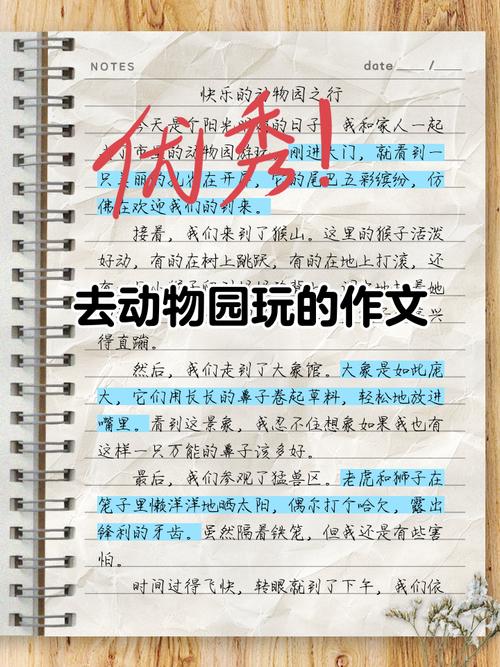 NOTES
date ___ / ___
快乐的动物园之行
优秀！
今天是个阳光的日子 我和家人一起
市里的动物园游玩 刚进大门，就看到一
只美丽的在开 的尾巴五彩缤纷，仿
佛在欢迎我们的到来。
接着，我们来到了猴山。这里的猴子活泼
好动，有的在树上跳跃，有的在地上打滚，还
去动物园玩的作文
兴
得直蹦。
然后，我们走到了大象馆。大象是如此庞
大，它们用长长的鼻子卷起草料，轻松地放进
嘴里。看到这景象，我忍不住想象如果我也有
这样一只万能的鼻子该多好。
最后，我们参观了猛兽区。老虎和狮子在
笼子里懒洋洋地晒太阳，偶尔打个哈欠，露出
锋利的牙齿。虽然隔着铁笼，但我还是有些害
怕。
时间过得飞快，转眼就到了下午，我们依